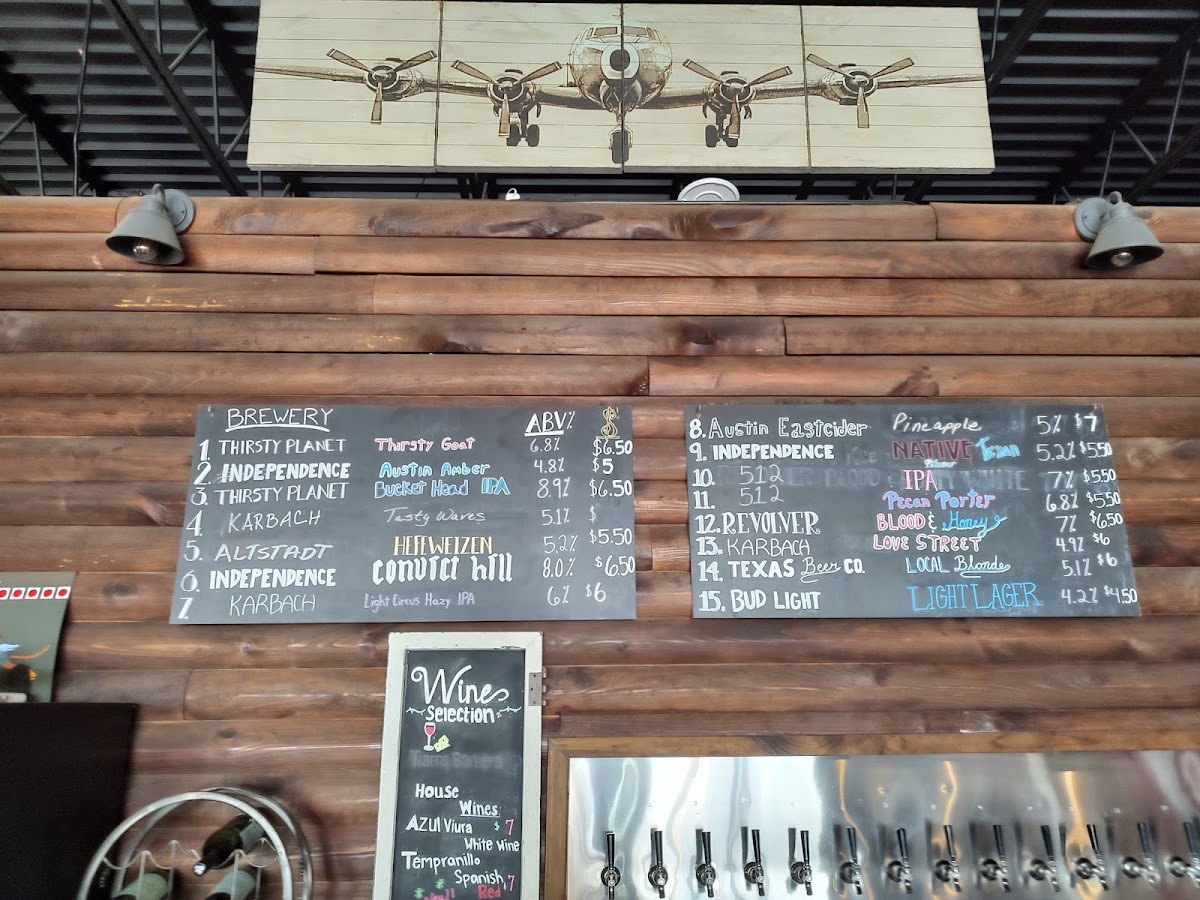 BREWERY ABV% $
1. THIRSTY PLANET Thirsty Goat 6.8% $6.50
2. INDEPENDENCE Austin Amber 4.8% $5
3. THIRSTY PLANET Bucket Head IPA 8.9% $6.50
4. KARBACH Tasty Waves 5.1% $
5. ALTSTADT HEFEWEIZEN 5.2% $5.50
6. INDEPENDENCE convict hill 8.0% $6.50
7. KARBACH Light Circus Hazy IPA 6% $6
8. Austin Eastcider Pineapple 5% $7
9. INDEPENDENCE NATIVE Texan Pilsner 5.2% $5.50
10. 512 IPA 7% $5.50
11. 512 Pecan Porter 6.8% $5.50
12. REVOLVER BLOOD & Honey 7% $6.50
13. KARBACH LOVE STREET 4.9% $6
14. TEXAS Beer CO. LOCAL Blonde 5.1% $6
15. BUD LIGHT LIGHT LAGER 4.2% $4.50
Wine
Selection
House
Wines
AZUL Viura $7
White Wine
Tempranillo
Spanish $7
Red